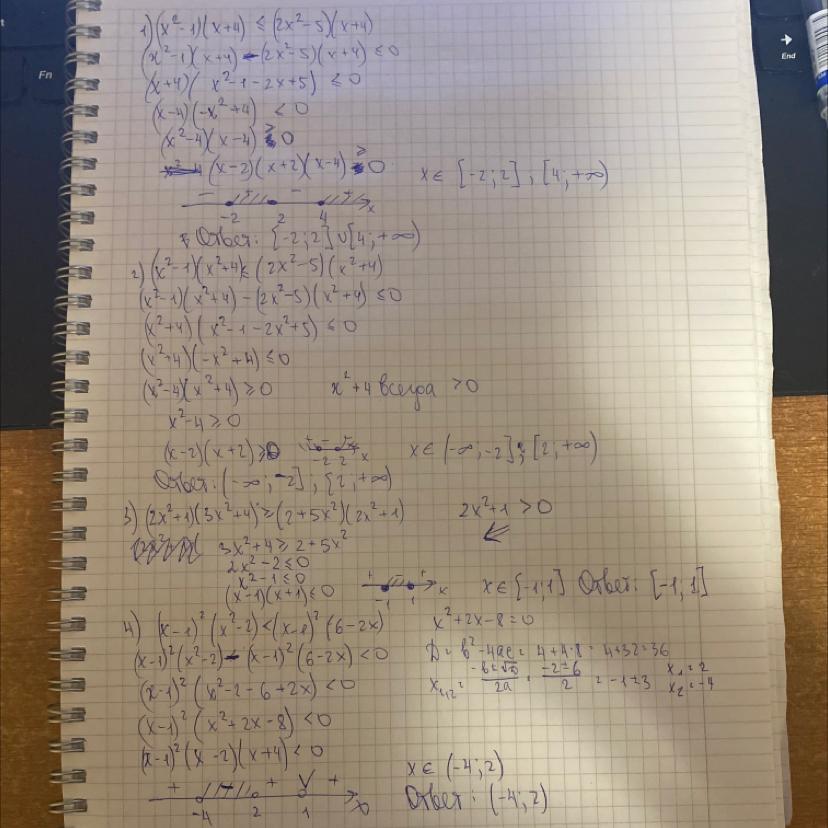 Fn
End
1) (x²-1)(x+4) ≤ (2x²-5)(x+4)
(x²-1)(x+4) - (2x²-5)(x+4) ≤ 0
(x+4)( x²-1-2x+5) ≤ 0
(x-4)(-x²+4) ≤ 0
(x²-4)(x-4) ≥ 0
(x-2)(x+2)(x-4) ≥ 0 x ∈ [-2; 2] ; [4; +∞)
- + - + x
-2 2 4
Ответ: [-2; 2] ∪ [4; +∞)
2) (x²-1)(x²+4) ≤ (2x²-5)(x²+4)
(x²-1)(x²+4) - (2x²-5)(x²+4) ≤ 0
(x²+4)(x²-1-2x²+5) ≤ 0
(x²+4)(-x²+4) ≤ 0
(x²-4)(x²+4) ≥ 0 x²+4 всегда > 0
x²-4 ≥ 0
(x-2)(x+2) ≥ 0 + - + -2 2 x x ∈ (-∞; -2] ; [2; +∞)
Ответ: (-∞; -2] ; [2; +∞)
3) (2x²+1)(3x²+4) ≥ (2+5x²)(2x²+1) 2x²+1 > 0
3x²+4 ≥ 2+5x²
2x²-2 ≤ 0
x²-1 ≤ 0
(x-1)(x+1) ≤ 0 + - + -1 1 x x ∈ [-1; 1] Ответ: [-1; 1]
4) (x-1)²(x²-2) < (x-1)²(6-2x) x²+2x-8=0
(x-1)²(x²-2) - (x-1)²(6-2x) < 0 D = b²-4ac = 4+4·8 = 4+32=36
(x-1)²(x²-2-6+2x) < 0 x₁,₂ = (-b±√D)/2a = (-2±6)/2 = -1±3 x₁=2 x₂=-4
(x-1)²(x²+2x-8) < 0
(x-1)²(x-2)(x+4) < 0
x ∈ (-4; 2)
+ - + +
-4 2 1
Ответ: (-4; 2)